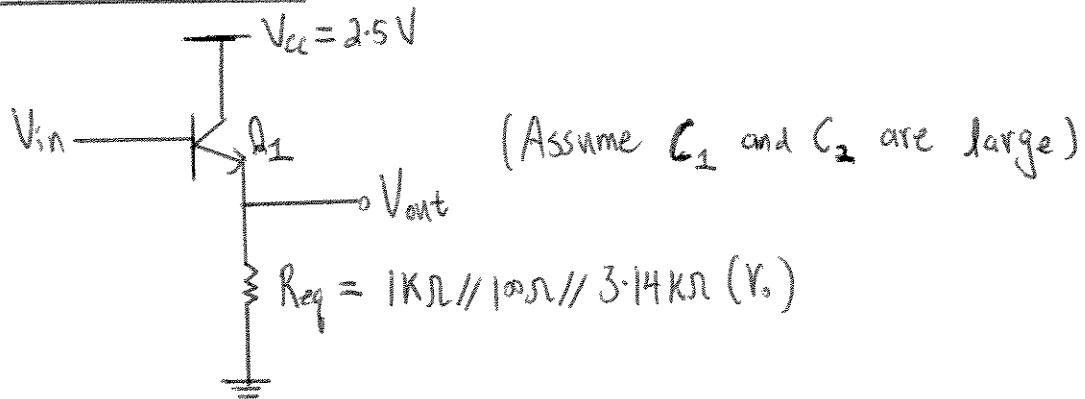 Vcc = 2.5 V
Vin
Q1
(Assume C1 and C2 are large)
Vout
Req = 1KΩ // 100Ω // 3.14KΩ (ro)